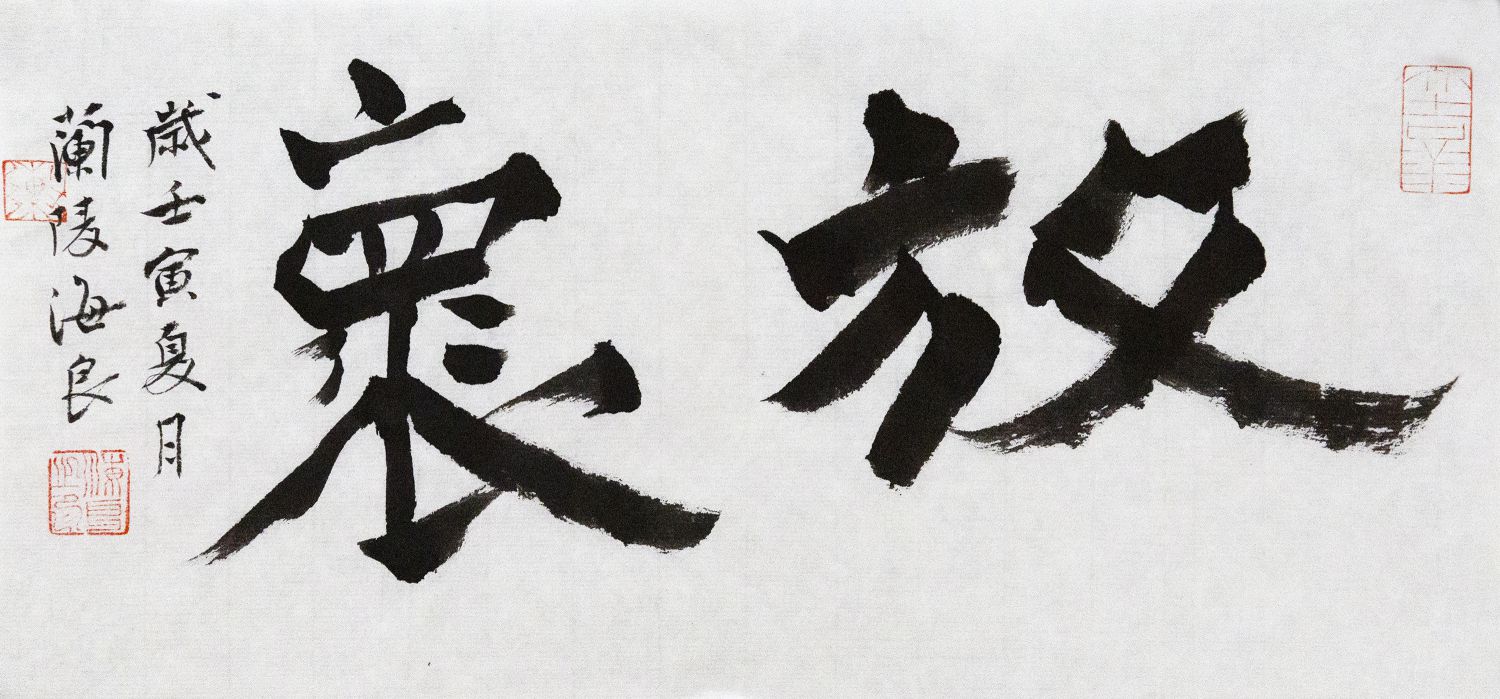 放褱
歲壬寅夏月
蘭陵海良